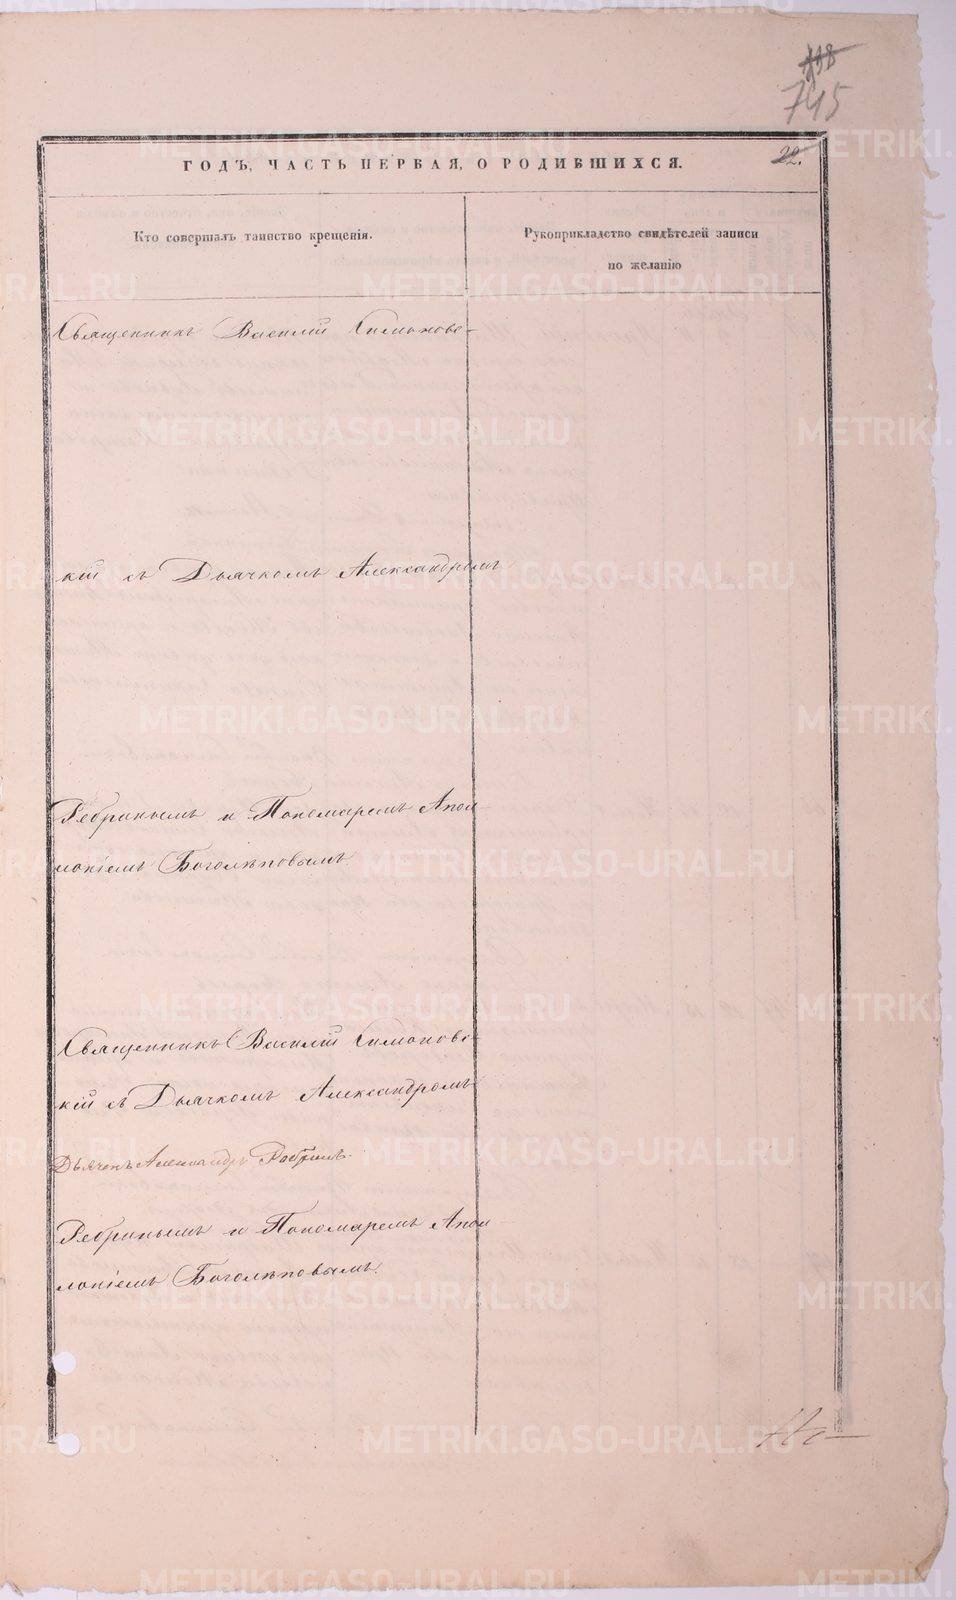 745
ГОДЪ, ЧАСТЬ ПЕРВАЯ, О РОДИВШИХСЯ.
22.
Кто совершалъ таинство крещенія.
Рукоприкладство свидѣтелей записи
по желанію
Священникъ Василій Симоновс-
кій съ Дьячкомъ Александромъ
Ребринымъ и Пономаремъ Апол
лоніемъ Боголѣповымъ
Священникъ Василій Симоновс-
кій съ Дьячкомъ Александромъ
Дьячекъ Александръ Ребринъ
Ребринымъ и Пономаремъ Апол
лоніемъ Боголѣповымъ.
METRIKI.GASO-URAL.RU